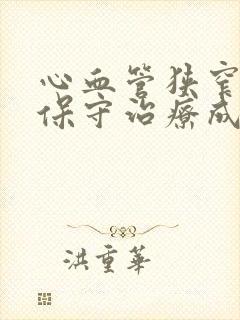 心血管狹窄
保守治療成
洪重華